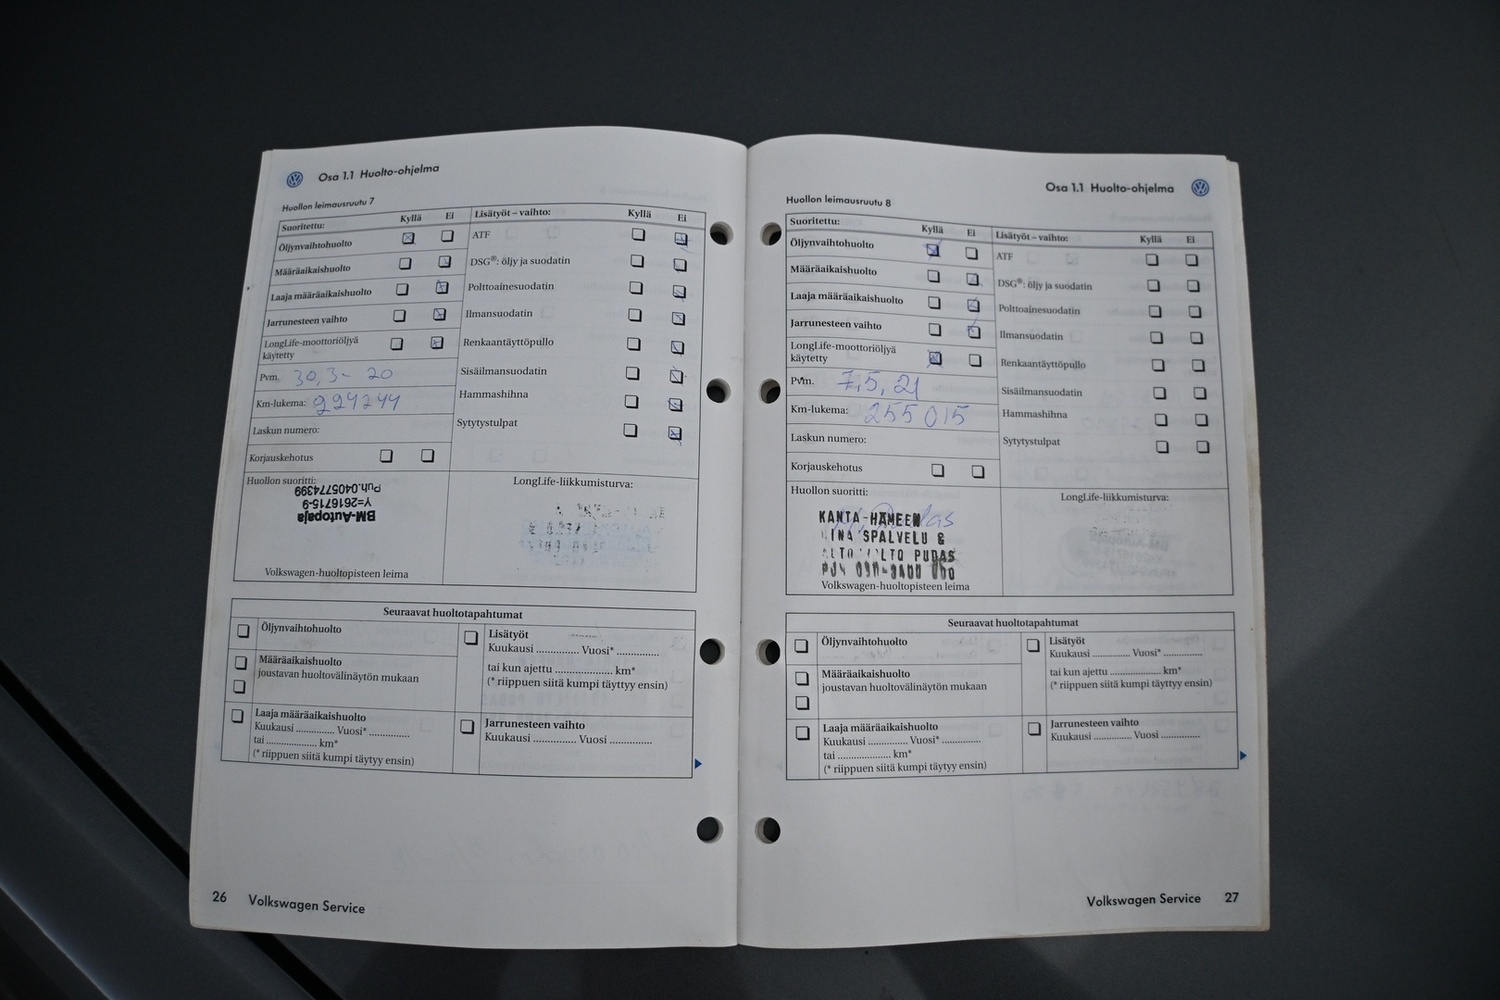 Osa 1.1 Huolto-ohjelma
Huollon leimausruutu 7
Suoritettu: Kyllä Ei
Öljynvaihtohuolto
Määräaikaishuolto
Laaja määräaikaishuolto
Jarrunesteen vaihto
LongLife-moottoriöljyä
käytetty
Pvm. 30,3- 20
Km-lukema: 224244
Laskun numero:
Korjauskehotus
Lisätyöt – vaihto: Kyllä Ei
ATF
DSG®: öljy ja suodatin
Polttoainesuodatin
Ilmansuodatin
Renkaantäyttöpullo
Sisäilmansuodatin
Hammashihna
Sytytystulpat
Huollon suoritti:
BM-Autopaja
Y=2616715-9
Puh.0405774399
Volkswagen-huoltopisteen leima
LongLife-liikkumisturva:
Seuraavat huoltotapahtumat
Öljynvaihtohuolto
Määräaikaishuolto
joustavan huoltovälinäytön mukaan
Laaja määräaikaishuolto
Kuukausi .............. Vuosi* ..............
tai .................... km*
(* riippuen siitä kumpi täytyy ensin)
Lisätyöt
Kuukausi .............. Vuosi* ..............
tai kun ajettu .................... km*
(* riippuen siitä kumpi täyttyy ensin)
Jarrunesteen vaihto
Kuukausi .............. Vuosi ..............
26 Volkswagen Service
Osa 1.1 Huolto-ohjelma
Huollon leimausruutu 8
Suoritettu: Kyllä Ei
Öljynvaihtohuolto
Määräaikaishuolto
Laaja määräaikaishuolto
Jarrunesteen vaihto
LongLife-moottoriöljyä
käytetty
Pvm. 7,5, 21
Km-lukema: 255 015
Laskun numero:
Korjauskehotus
Lisätyöt – vaihto: Kyllä Ei
ATF
DSG®: öljy ja suodatin
Polttoainesuodatin
Ilmansuodatin
Renkaantäyttöpullo
Sisäilmansuodatin
Hammashihna
Sytytystulpat
Huollon suoritti:
KANTA-HÄMEEN
SPALVELU &
PUDAS
Volkswagen-huoltopisteen leima
LongLife-liikkumisturva:
Seuraavat huoltotapahtumat
Öljynvaihtohuolto
Määräaikaishuolto
joustavan huoltovälinäytön mukaan
Laaja määräaikaishuolto
Kuukausi .............. Vuosi* ..............
tai .................... km*
(* riippuen siitä kumpi täytyy ensin)
Lisätyöt
Kuukausi .............. Vuosi* ..............
tai kun ajettu .................... km*
(* riippuen siitä kumpi täyttyy ensin)
Jarrunesteen vaihto
Kuukausi .............. Vuosi ..............
Volkswagen Service 27